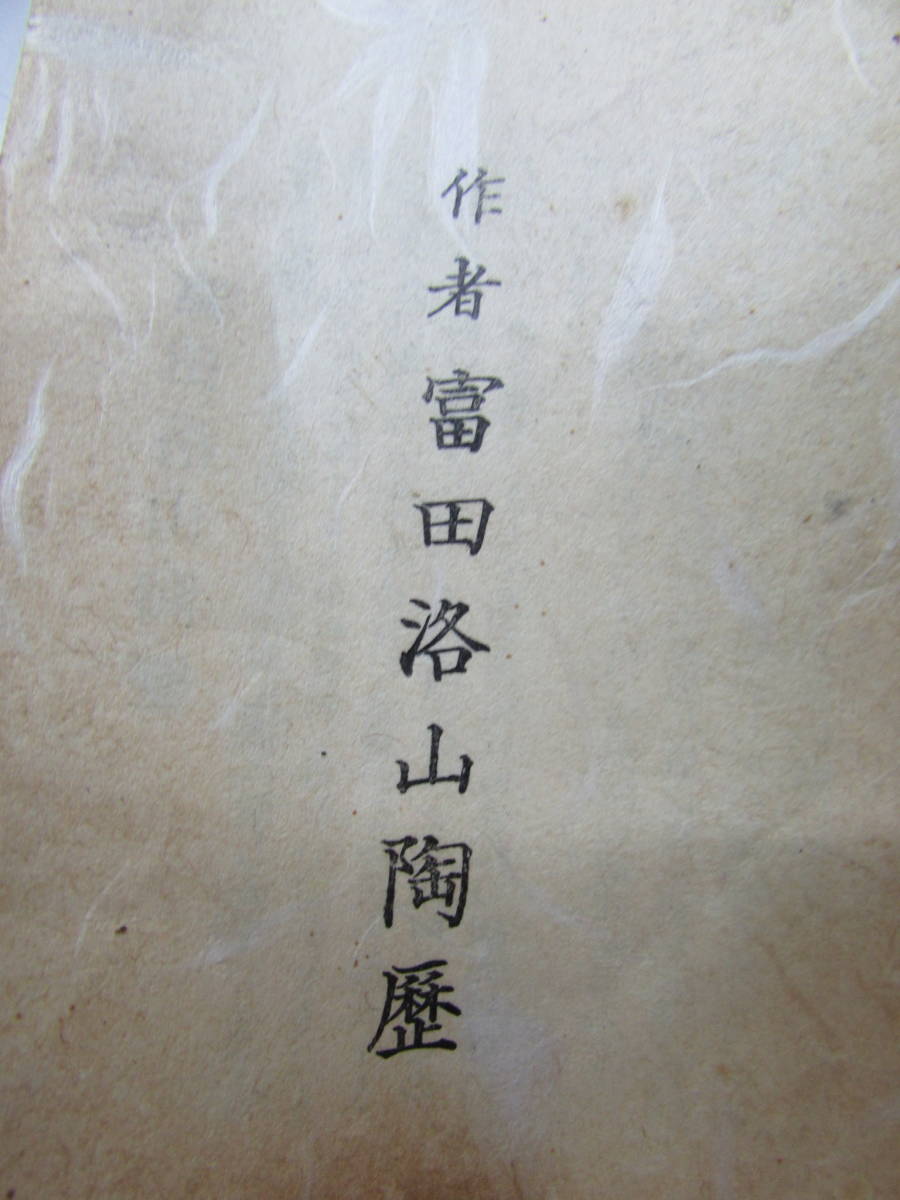 作者富田洛山陶歴